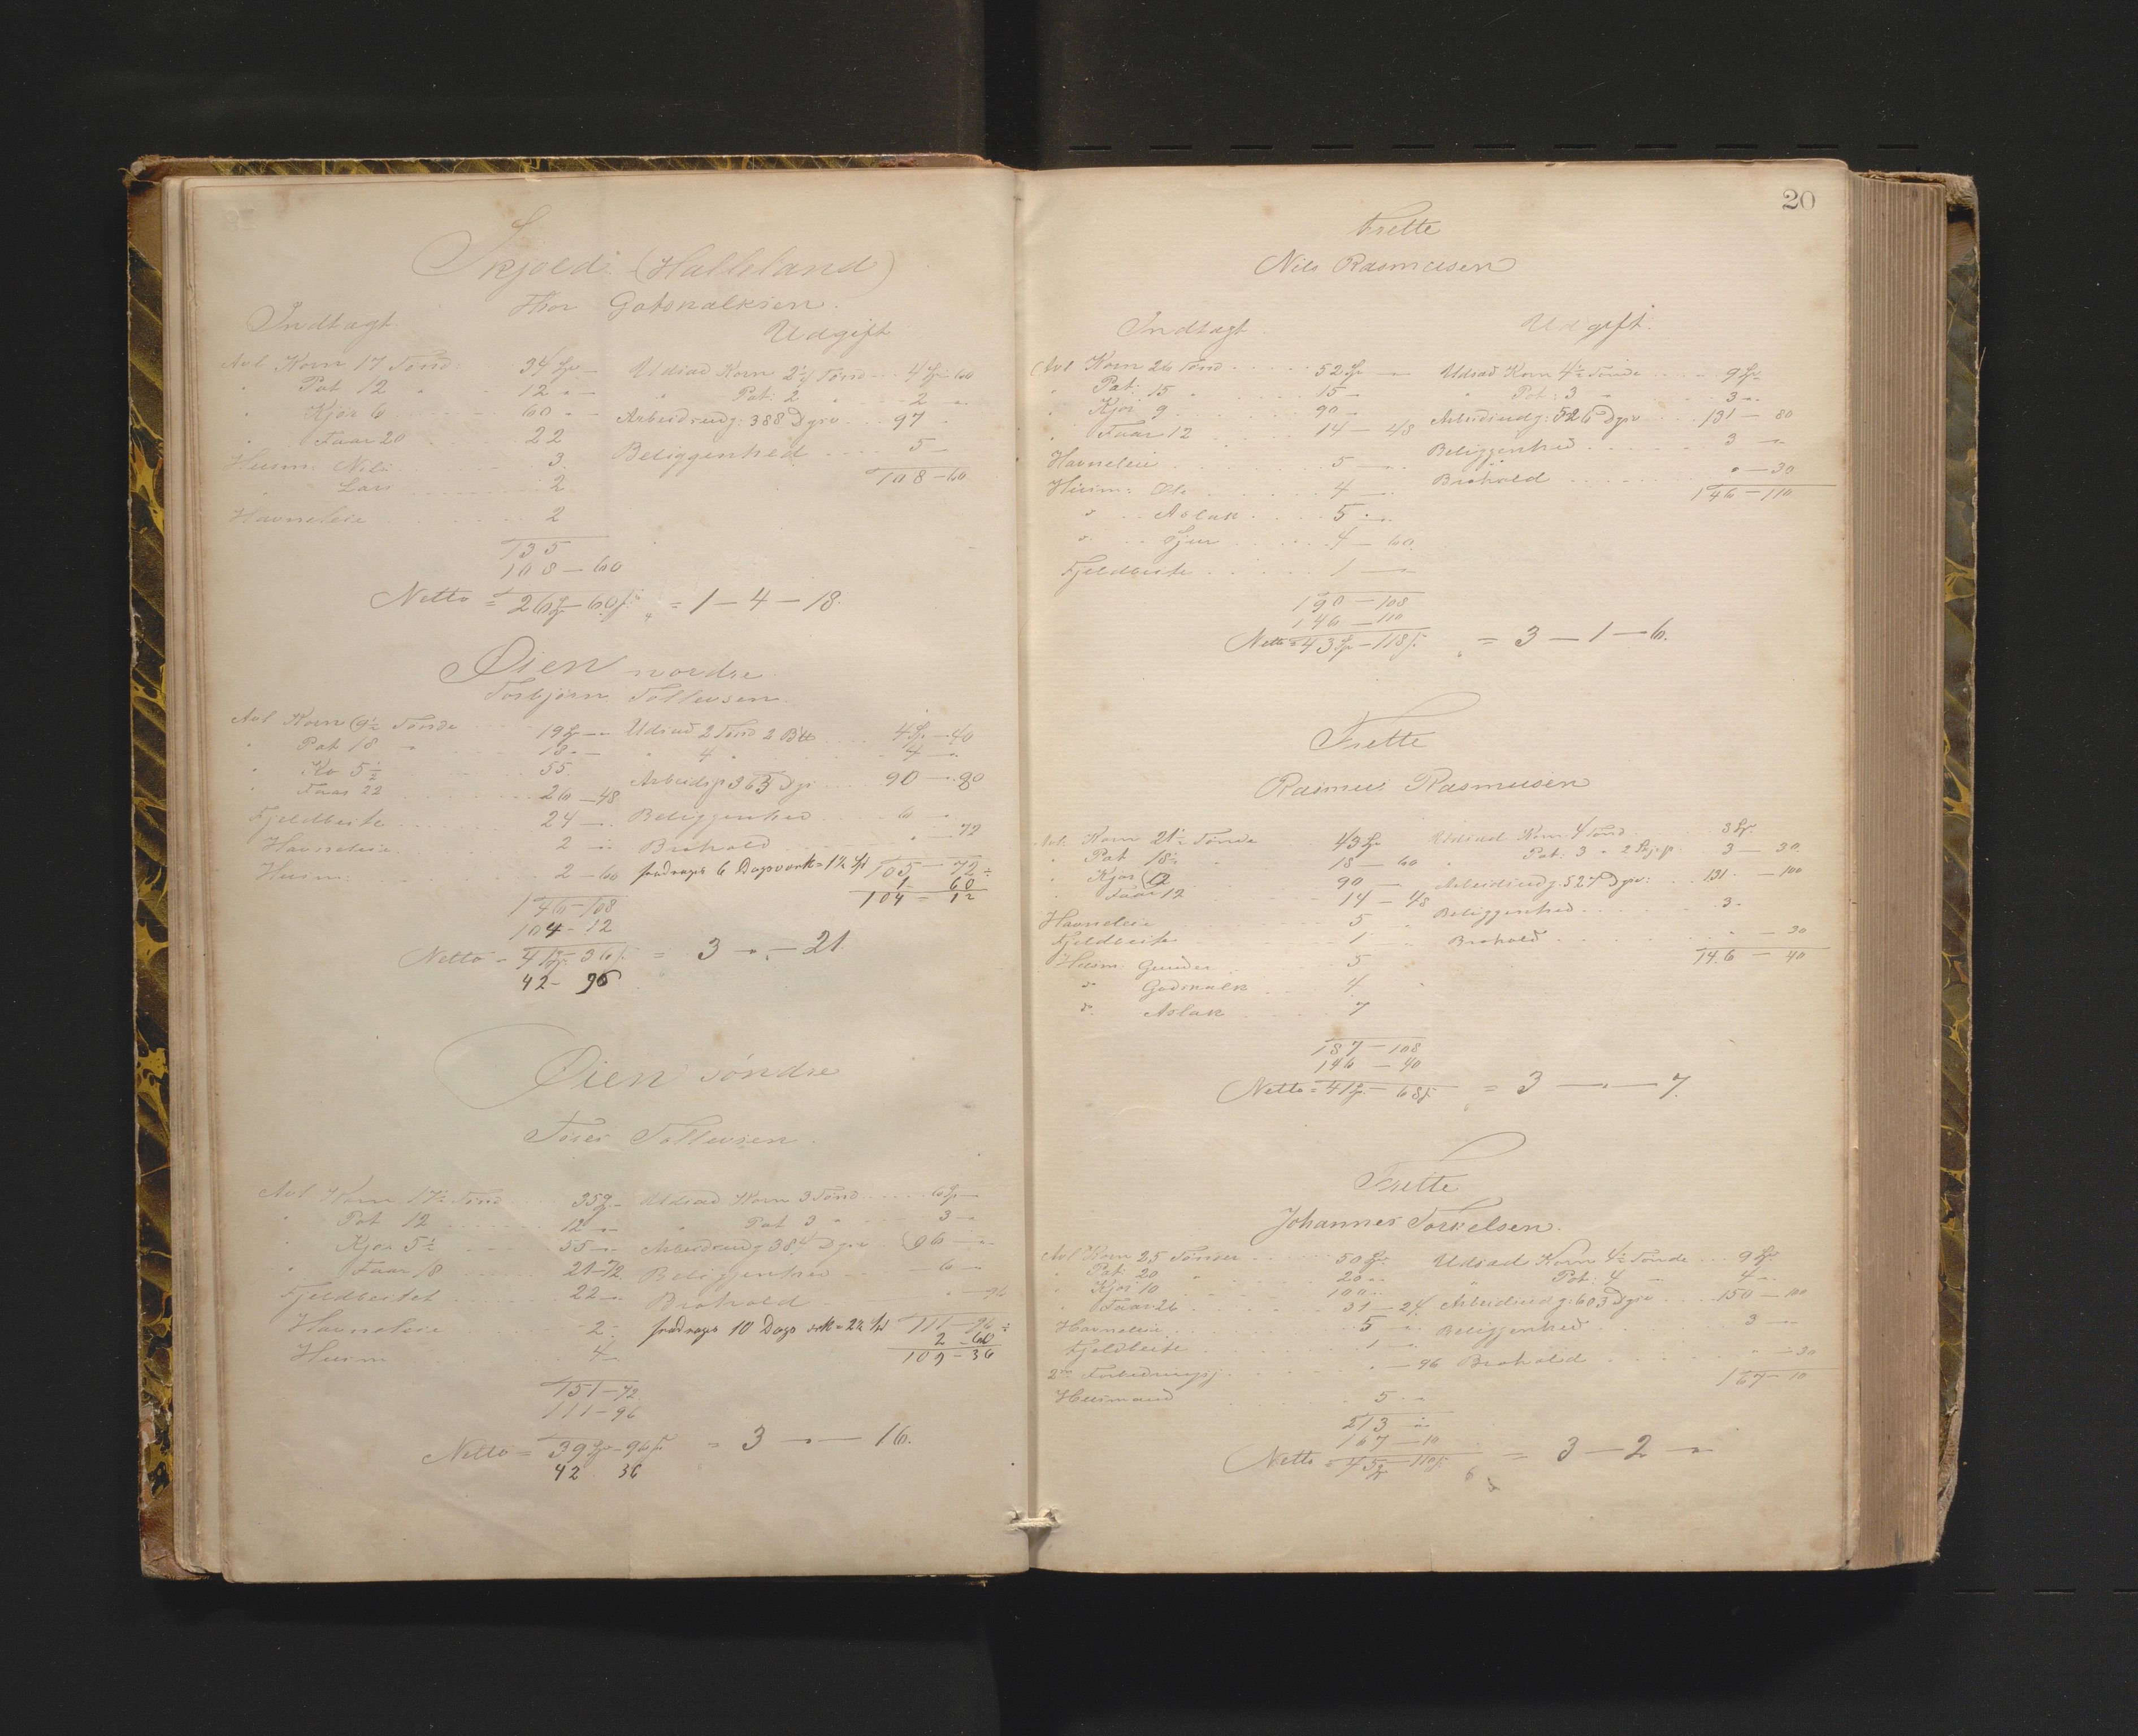 Skjold (Halleland)
Thor Gotskalksen.
Indtægt Udgift
Avl Korn 17 Tønd: 34 Sp — Udsæd Korn 2¼ Tønd 4 Sp 60
" Pot 12 " 12 " — " Pot: 2 " 2 "
" Kjør 6 60 " — Arbeidsudg: 388 Dgsv 97 "
" Faar 20 22 Beliggenhed 5 —
Husm: Nils 3 108 — 60
" Lars 2
Havneleie 2
135
108 — 60
Netto = 26 Sp — 60 s = 1 — 4 — 18.
Øien nordre
Torbjørn Tollevsen.
Avl Korn 9½ Tønde 19 Sp — " Udsæd 2 Tønd 2 4 Sp — 40
" Pot 18 " 18 " — " 4 " 4 — "
" Kø 5½ 55 Arbeidsp 363 Dgs 90 — 90
" Faar 22 26 — 48
Fjeldbeite 24 — Beliggenhed 6 "
Havneleie 2 — Brohold " — 72
Husm: 2 — 60 fradrages 6 Dagsverk = 1½ Sp 105 — 72 ÷
1 60
146 — 108 104 — 12
104 — 12
Netto = 41 Sp 36 s = 3 — " — 21.
42 — 96
Øien søndre
Tores Tollevsen.
Avl Korn 17½ Tønd 35 Sp — Udsæd Korn 3 Tønd 6 Sp —
" Pot 12 12 — " " Pot 3 " 3 — "
" Kjør 5½ 55 — Arbeidsudg 384 Dgsv 96 — "
" Faar 18 21 — 72 Beliggenhed 6 —
Fjeldbeitet 22 — " Brohold " — 96
Havneleie 2 — fradrages 10 Dags = 2½ Sp 111 — 96 ÷
Husm 4 — 2 — 60
109 — 36
151 — 72
111 — 96
Netto = 39 Sp — 96 s = 3 — " — 16.
42 36
20
Frette
Nils Rasmusen
Indtægt Udgift.
Avl Korn 26 Tønd 52 Sp — Udsæd Korn 4½ Tønde 9 Sp
" Pot: 15 " 15 — " Pot: 3 " 3 — "
" Kjør 9 90 — Arbeidsudg: 526 Dgsv 131 — 80
" Faar 12 14 — 48 Beliggenhed 3 — "
Havneleie 5 — Brohold " — 30
Husm: Ole 4 — 146 — 110
" Aslak 5 —
" Sjur 4 — 60.
Fjeldbeite 1 —
190 — 108
146 — 110
Netto = 43 Sp — 118 s = 3 — 1 — 6.
Frette
Rasmus Rasmusen
Avl: Korn 21½ Tønde 43 Sp Udsæd Korn 4 Tønd 8 Sp.
" Pot 18½ " 18 — 60 " Pot: 3 " 2 Skjp: 3 — 30.
" Kjør 9 90 — Arbeidsudg. 527 Dgsv: 131 — 100
" Faar 12 14 — 48 Beliggenhed 3 —
Havneleie 5 Brohold " — 30
Fjeldbeite 1 — 146 — 40
Husm: Gunder 5
" Godskalk 4
" Aslak 7
187 — 108
146 — 40
Netto = 41 Sp — 68 s = 3 — " — 7.
Frette
Johannes Torkelsen.
Avl Korn 25 Tønder 50 Sp. Udsæd Korn 4½ Tønde 9 Sp
" Pot 20 20 " " Pot: 4 " 4 — "
" Kjør 10 100 " Arbeidsudg: 603 Dgsv 150 — 100
" Faar 26 31 — 24 Beliggenhed 3 — "
Havneleie 5 — " Brohold " — 30
Fjeldbeite 1 — 167 — 10
" — 96
Husmand 5 — "
213 "
167 — 10
Netto = 45 Sp — 110 s = 3 — 2 — "